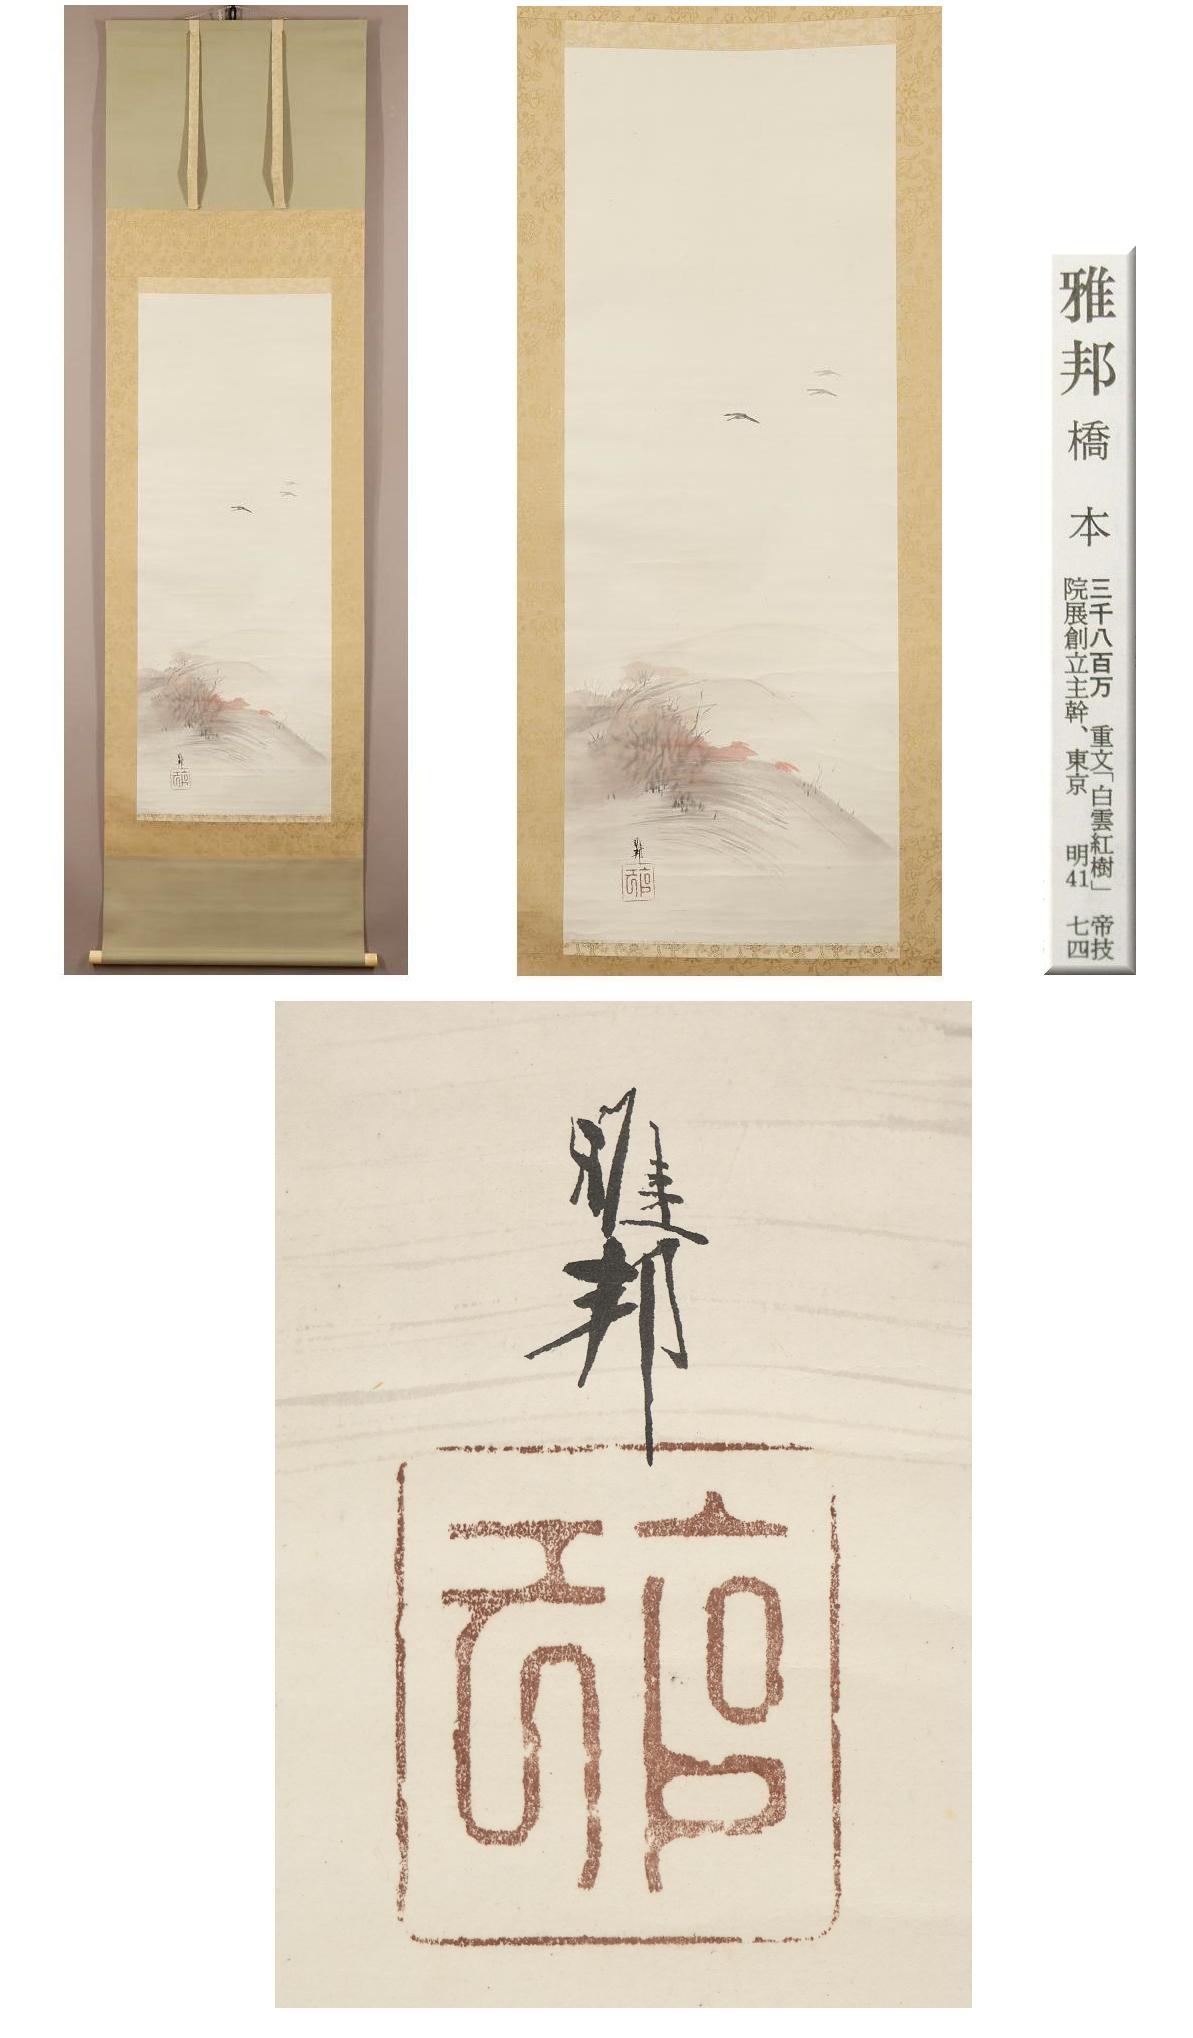 雅邦 橋本
三千八百万 重文「白雲紅樹」 帝技
院展創立主幹、東京 明41 七四
雅邦